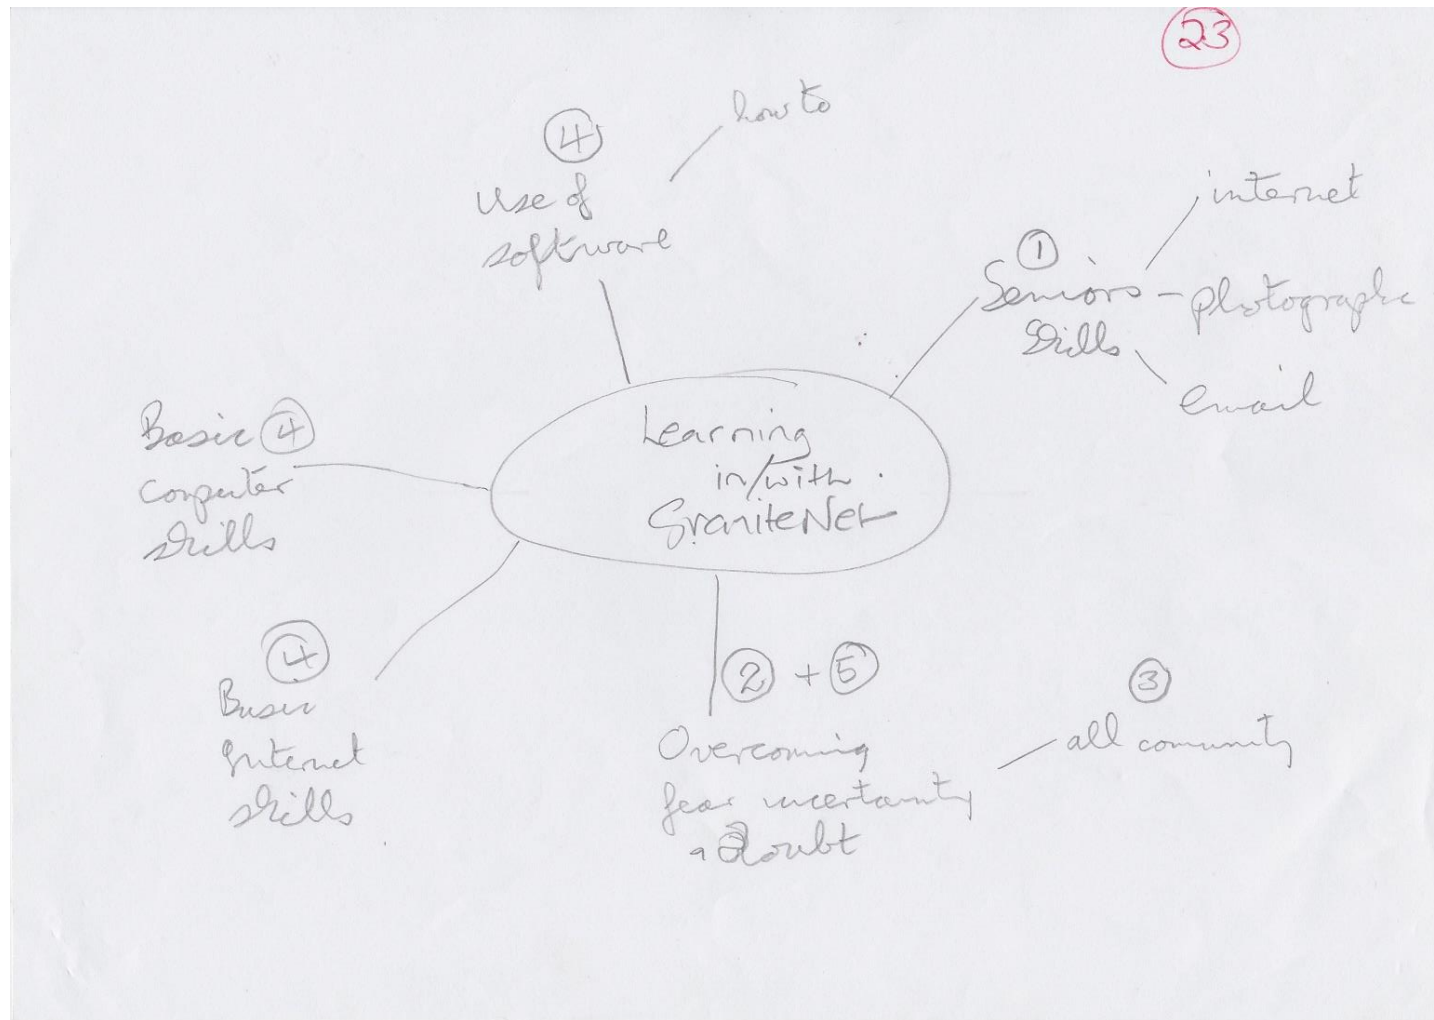 23
how to
4
Use of
software
internet
1
Seniors - photographic
Skills
email
Learning
in/with
GraniteNet
Basic 4
computer
skills
4
Basic
Internet
skills
2 + 5
Overcoming
fear uncertainty
& Doubt
3
all comunity